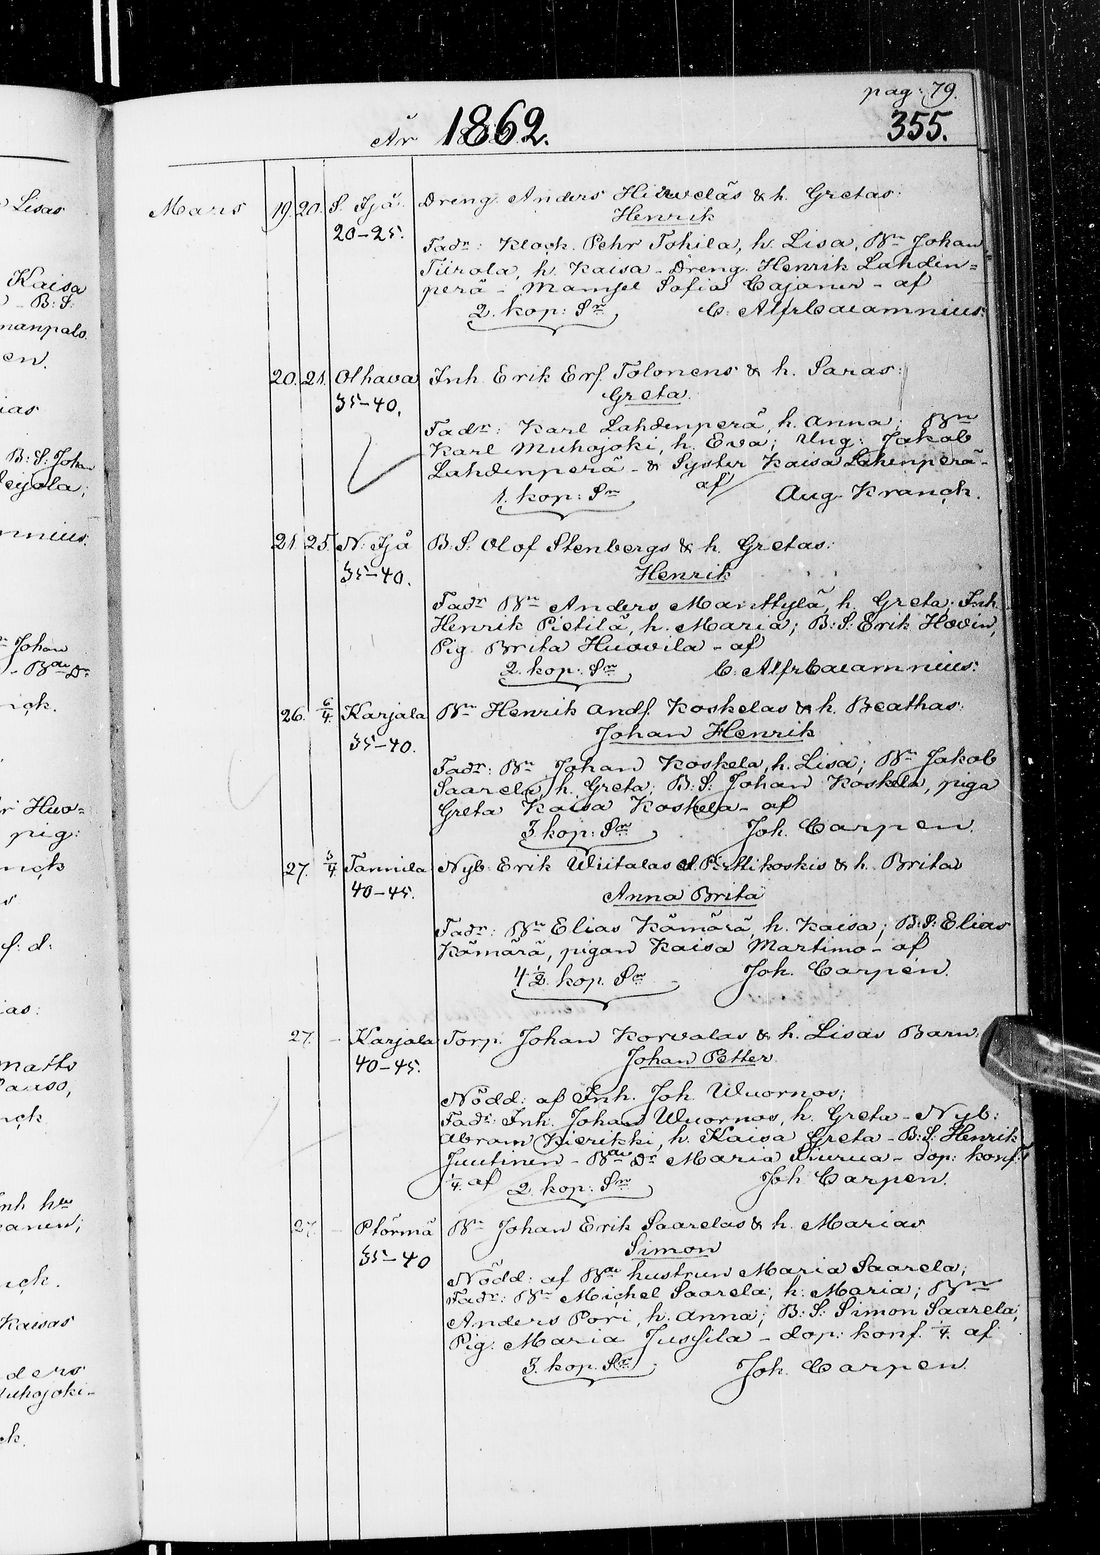 pag: 79.
År 1862. 355.
Mars 19. 20. S. Ijå. Dreng Anders Hirvelas & h. Gretas:
20-25. Henrik
Fadr: Klock. Pehr Tohila, h. Lisa, Bn Johan
Tiirola, h. Kaisa - Dreng Henrik Lahden=
perä - Mamsel Sofia Cajaner - af
2. kop: Sr C. Alfr Calamnius.
20. 21. Olhava Inh. Erik Ersf Tolonens & h. Saras:
35-40. Greta.
Fadr: Karl Lahdenperä, h. Anna; Bn
Karl Muhojoki, h. Eva; Ung: Jakob
Lahdenperä - & Syster Kaisa Lahenperä -
af
1. kop: Sr Aug. Kranck.
21. 25. N. Ijå B:S: Olof Stenbergs & h. Gretas:
35-40. Henrik
Fadr Bn Anders Manttylä, h. Greta; Inh.
Henrik Pietilä, h. Maria; B:S: Erik Hovin,
Pig. Brita Huovila - af
2. kop: Sr C. Alfr Calamnius.
26. 6/4 Karjala Bn Henrik Andf. Koskelas & h. Beathas:
35-40. Johan Henrik
Fadr: Bn Johan Koskela, h. Lisa; Bn Jakob
Saarela, h. Greta; B:S: Johan Koskela, piga
Greta Kaisa Koskela - af
3. kop: Sr Joh. Carpen.
27. 5/4 Tannila Nyb. Erik Wiitalas l. Pirttikoskis & h. Britas
40-45. Anna Brita
Fadr: Bn Elias Kämärä, h. Kaisa; B:S: Elias
Kämärä, pigan Kaisa Martimo - af
4 1/2. kop. Sr Joh. Carpén.
27. - Karjala Torp. Johan Korvalas & h. Lisas Barn.
40-45. Johan Petter.
Nödd: af Inh. Joh. Wuornos;
Fadr: Inh. Johan Wuornos, h. Greta - Nyb:
Abram Kierikki, h. Kaisa Greta - B:S: Henrik
Juutinen - Bde Dr Maria Liurua - dop: konf:
1/4. af 2. kop: Sr Joh Carpen.
27. - Ptörmä Bn Johan Erik Saarelas & h. Marias
35-40 Simon
Nödd: af Bde hustrun Maria Saarela;
Fadr: Bn Michel Saarela, h. Maria; Bn
Anders Pori, h. Anna; B:S: Simon Saarela;
Pig. Maria Jussila - dop: konf. 1/4. af
3. kop. Sr Joh. Carpen.